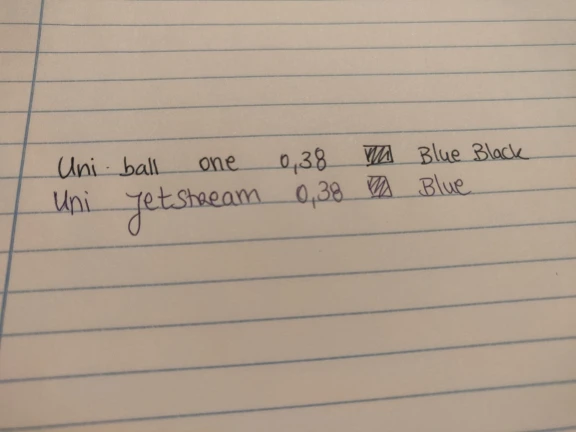 Uni-ball one 0,38 Blue Black
Uni Jetstream 0,38 Blue